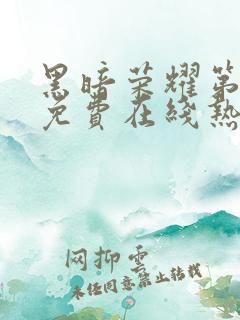 黑暗荣耀第
免费在线热
网抑云
未经同意禁止转载